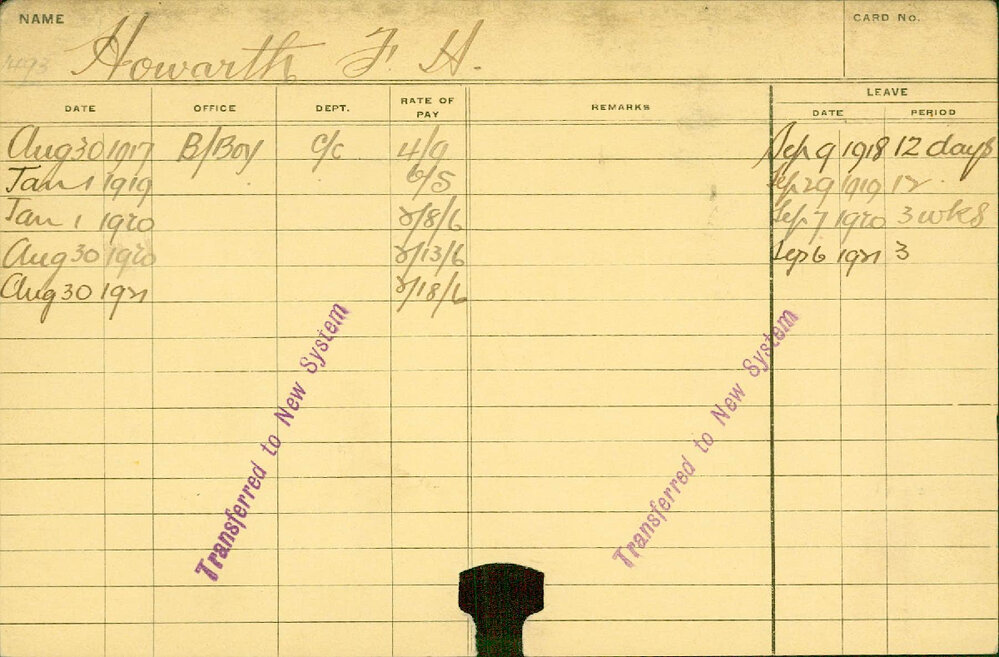 NAME
CARD No.
Howarth F. H.
DATE OFFICE DEPT. RATE OF PAY REMARKS LEAVE
DATE PERIOD
Aug 30 1917 B/Boy c/c 4/9 Sep 9 1918 12 days
Jan 1 1919 6/5 Sep 29 1919 12
Jan 1 1920 /8/6 Sep 7 1920 3 wks
Aug 30 1920 /13/6 Sep 6 1921 3
Aug 30 1921 /18/6
Transferred to New System
Transferred to New System